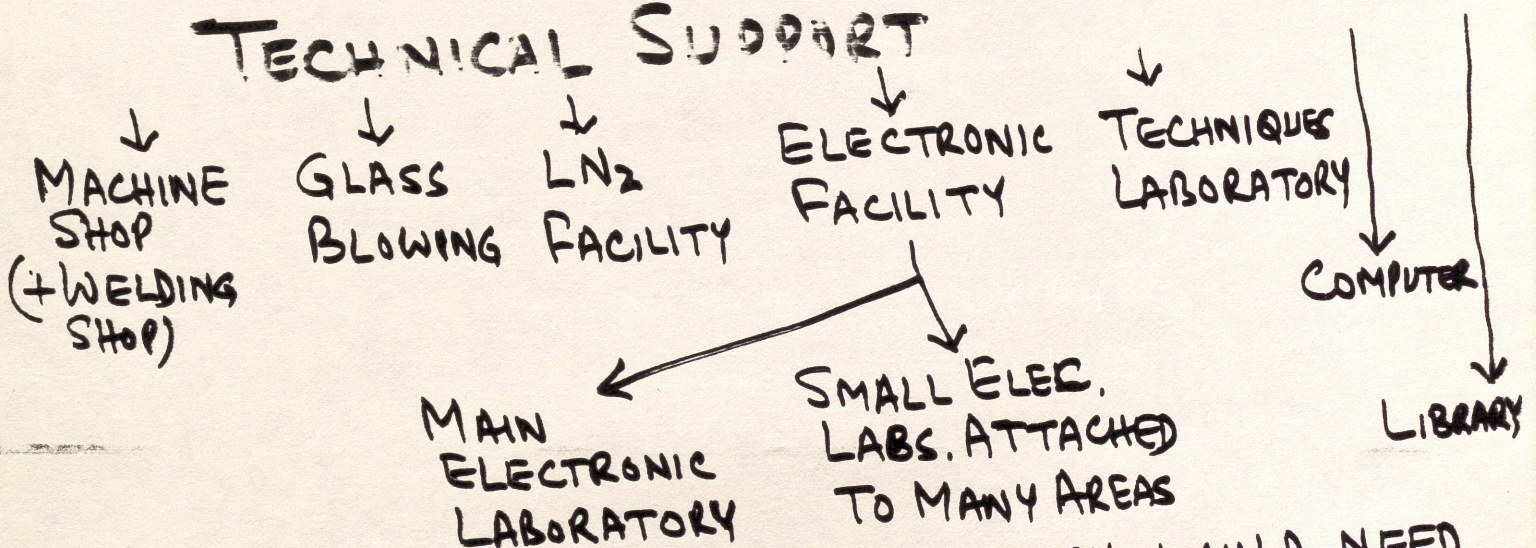 TECHNICAL SUPPORT
MACHINE
SHOP
(+WELDING
SHOP)
GLASS
BLOWING
LN2
FACILITY
ELECTRONIC
FACILITY
TECHNIQUES
LABORATORY
COMPUTER
LIBRARY
MAIN
ELECTRONIC
LABORATORY
SMALL ELEC.
LABS. ATTACHED
TO MANY AREAS
NEED